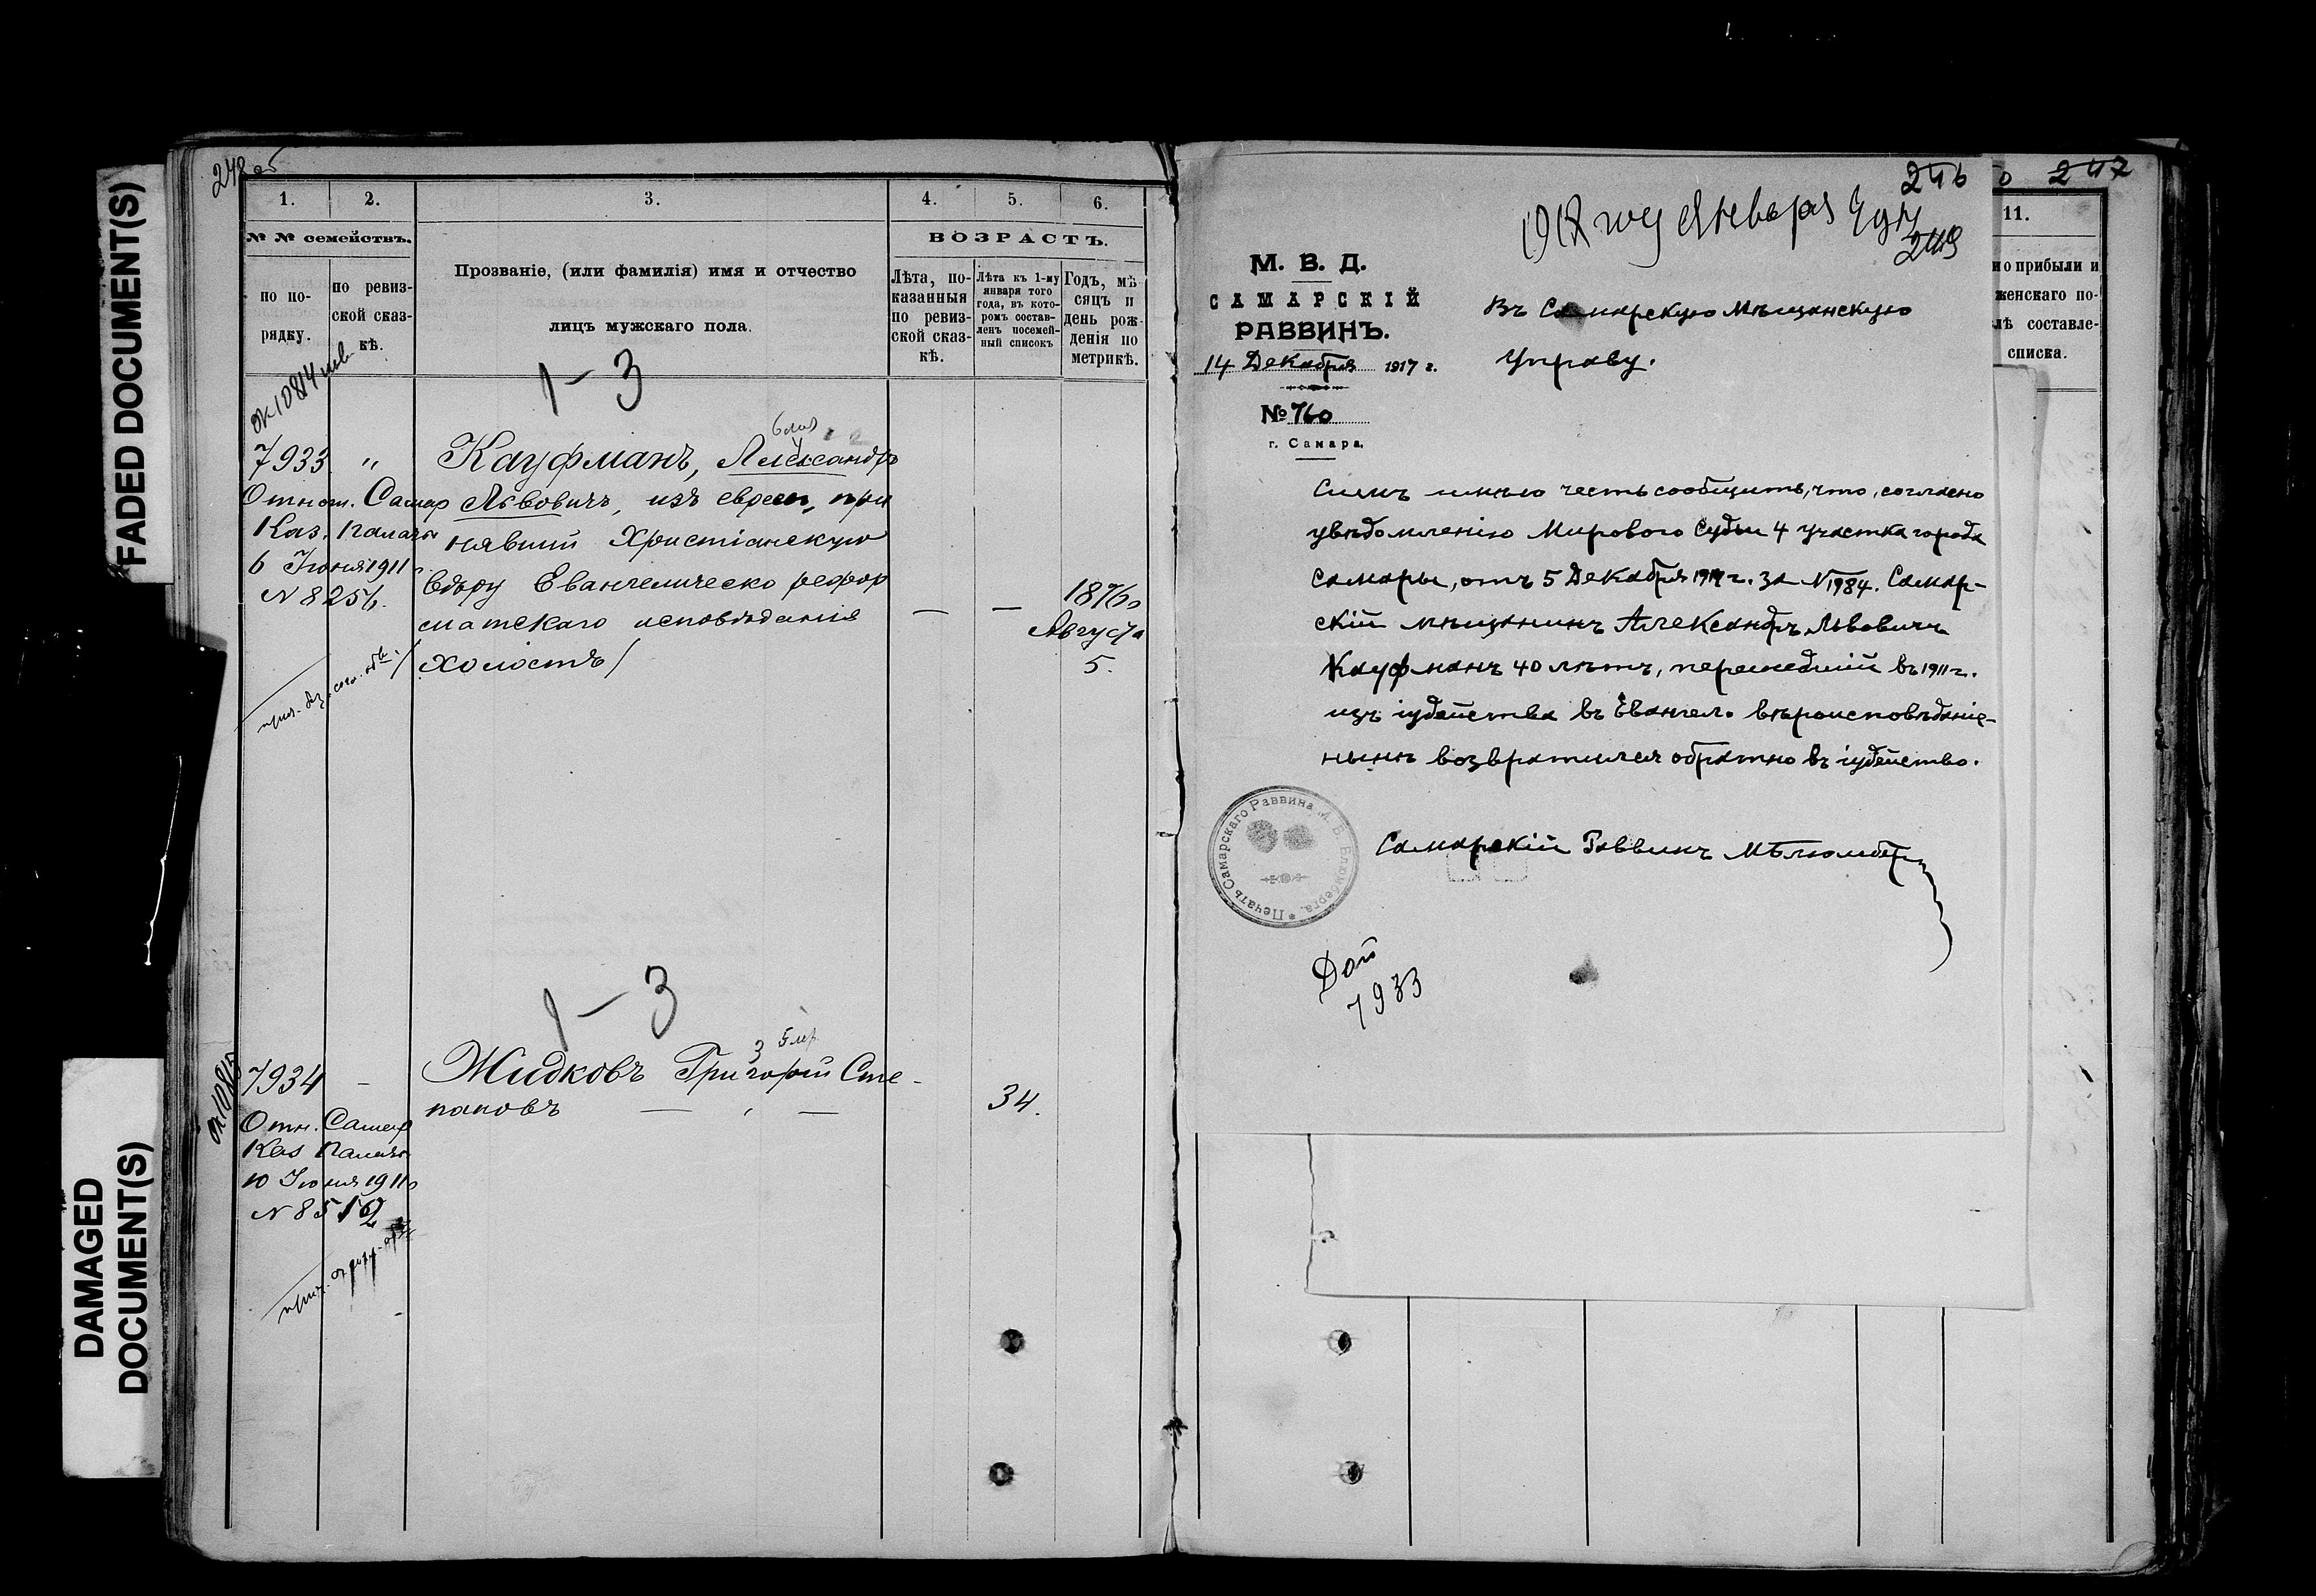 FADED DOCUMENT(S)
DAMAGED
DOCUMENT(S)
248 об
1. 2. 3. 4. 5. 6.
№ № семействъ.
по по-
рядку.
по ревиз-
ской сказ-
кѣ.
Прозваніе, (или фамилія) имя и отчество
лицъ мужскаго пола.
ВОЗРАСТЪ.
Лѣта, по-
казанныя
по ревиз-
ской сказ-
кѣ.
Лѣта къ 1-му
января того
года, въ кото-
ромъ состав-
ленъ посемей-
ный списокъ
Годъ, мѣ-
сяцъ и
день рож-
денія по
метрикѣ.
1-3
ок 10814
7933 "
Относ. Самар
Каз. Палаты
6 Іюня 1911 г.
N 8256.
Кауфманъ, Александръ
Львовичъ, изъ евреевъ, при
нявшій Христіанскую
вѣру Евангелическо реформ
матскаго исповѣданія
/холостъ/
— —
1876 г.
Августа
5.
1-3
ок 10815
7934 -
Отн. Самар
Каз Палаты
10 Іюня 1911 г.
N 8512
Жидковъ Григорій Сте-
пановъ
34.
246
1918 году Января 4 дня
249
М. В. Д.
САМАРСКІЙ
РАВВИНЪ.
14 Декабря 1917 г.
№ 760
г. Самара.
Въ Самарскую Мѣщанскую
Управу.
Симъ имѣю честь сообщить, что, согласно
увѣдомленію Мирового Судьи 4 участка города
Самары, отъ 5 Декабря 1917 г. за N 1984. Самар-
скій мѣщанинъ Александръ Львовичъ
Кауфманъ 40 лѣтъ, перешедшій въ 1911 г.
изъ іудейства въ Евангел. вѣроисповѣданіе-
нынѣ возвратился обратно въ іудейство.
Самарскій Раввинъ МБлюмберг
Печать Самарскаго Раввина М. Б. Блюмберга.
7933
247
11.
но прибыли и
женскаго по-
лѣ составле-
списка.